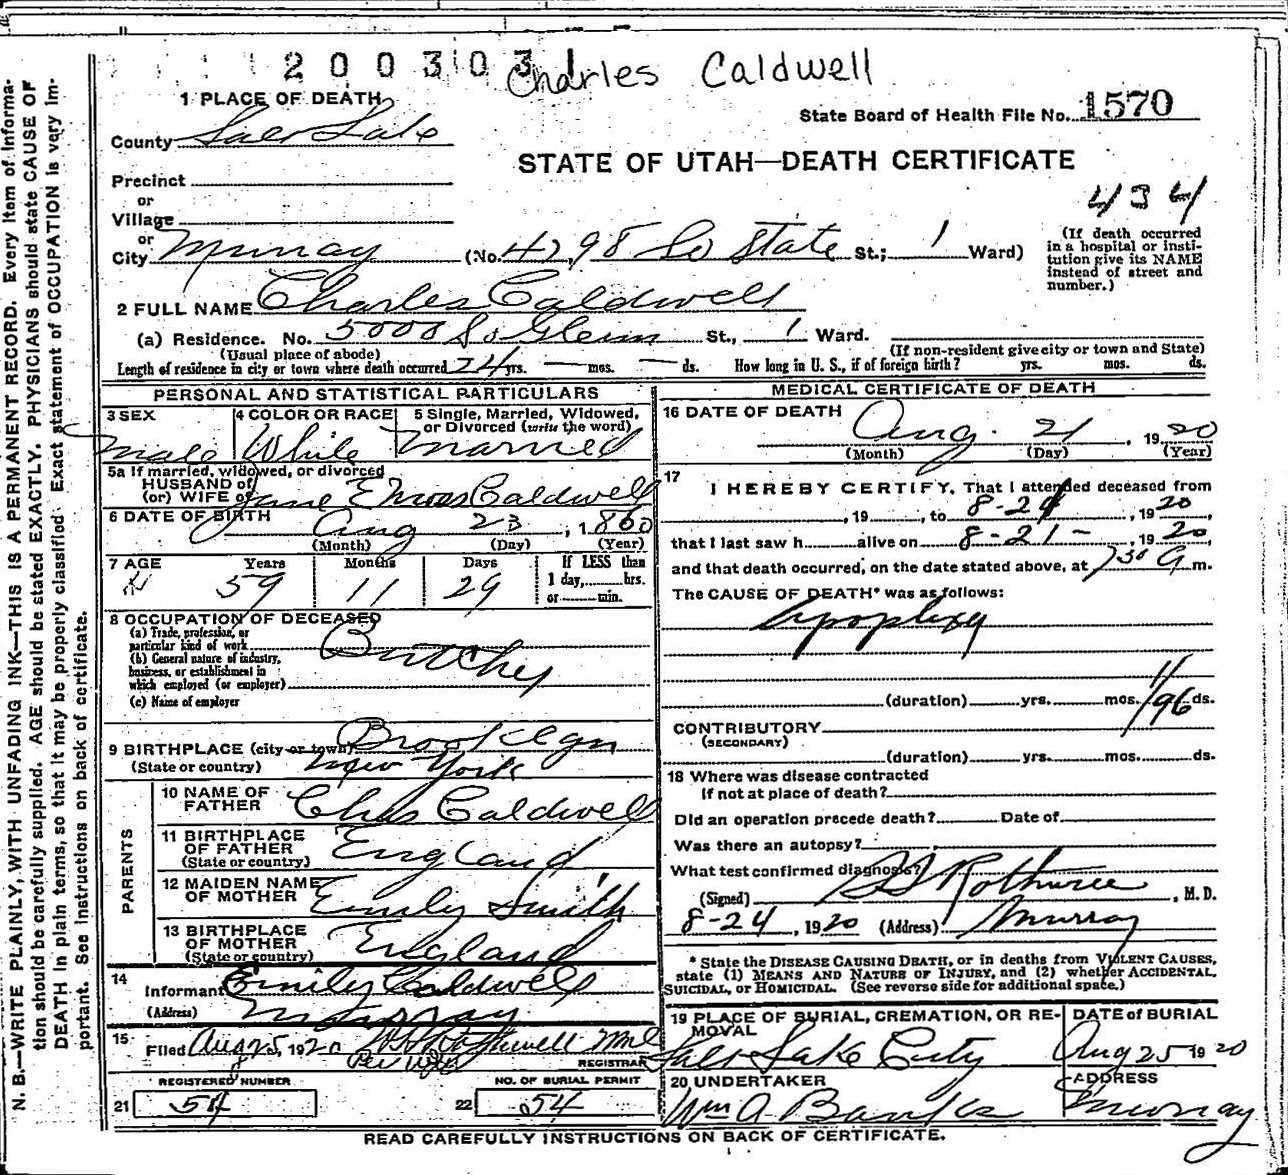 200303
Charles Caldwell
1 PLACE OF DEATH
State Board of Health File No. 1570
County Salt Lake
STATE OF UTAH—DEATH CERTIFICATE
Precinct
434
or
Village
or
City Murray (No. 4298 So State St.; 1 Ward)
(If death occurred in a hospital or insti-
tution give its NAME
instead of street and
number.)
2 FULL NAME Charles Caldwell
(a) Residence. No. 5000 So St., 1 Ward.
(Usual place of abode) (If non-resident give city or town and State)
Length of residence in city or town where death occurred 24 yrs. — mos. — ds. How long in U. S., if of foreign birth? yrs. mos. ds.
PERSONAL AND STATISTICAL PARTICULARS
3 SEX 4 COLOR OR RACE 5 Single, Married, Widowed,
or Divorced (write the word)
Male White Married
5a If married, widowed, or divorced
HUSBAND of
(or) WIFE of Jane Caldwell
6 DATE OF BIRTH Aug 23, 1860
(Month) (Day) (Year)
7 AGE Years Months Days If LESS than
1 day,......hrs.
or......min.
59 11 29
8 OCCUPATION OF DECEASED
(a) Trade, profession, or
particular kind of work Butcher
(b) General nature of industry,
business, or establishment in
which employed (or employer)
(c) Name of employer
9 BIRTHPLACE (city or town) Brooklyn
(State or country) New York
PARENTS
10 NAME OF
FATHER Chas Caldwell
11 BIRTHPLACE
OF FATHER England
(State or country)
12 MAIDEN NAME
OF MOTHER Emily Smith
13 BIRTHPLACE
OF MOTHER England
(State or country)
14
Informant Emily Caldwell
(Address) Murray
15 Filed Aug 25, 1920
REGISTRAR
REGISTERED NUMBER NO. OF BURIAL PERMIT
21 54 22 54
MEDICAL CERTIFICATE OF DEATH
16 DATE OF DEATH Aug. 21, 1920
(Month) (Day) (Year)
17
I HEREBY CERTIFY, That I attended deceased from
, 19 , to 8-21, 1920
that I last saw h alive on 8-21-, 1920,
and that death occurred, on the date stated above, at 730 A m.
The CAUSE OF DEATH* was as follows:
Apoplexy
(duration) yrs. mos. ds.
CONTRIBUTORY
(SECONDARY)
(duration) yrs. mos. ds.
18 Where was disease contracted
If not at place of death?
Did an operation precede death? Date of
Was there an autopsy?
What test confirmed diagnosis?
(Signed) , M. D.
8-24, 1920 (Address) Murray
* State the DISEASE CAUSING DEATH, or in deaths from VIOLENT CAUSES,
state (1) MEANS AND NATURE OF INJURY, and (2) whether ACCIDENTAL,
SUICIDAL, or HOMICIDAL. (See reverse side for additional space.)
19 PLACE OF BURIAL, CREMATION, OR RE-
MOVAL
DATE of BURIAL
Salt Lake City Aug 25 1920
20 UNDERTAKER ADDRESS
Wm A. Banks Murray
READ CAREFULLY INSTRUCTIONS ON BACK OF CERTIFICATE.
N. B.—WRITE PLAINLY, WITH UNFADING INK—THIS IS A PERMANENT RECORD. Every item of informa-
tion should be carefully supplied. AGE should be stated EXACTLY. PHYSICIANS should state CAUSE OF
DEATH in plain terms, so that it may be properly classified. Exact statement of OCCUPATION is very im-
portant. See instructions on back of certificate.